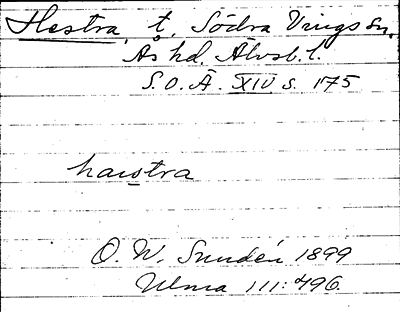 Hestra, t. Södra Vings sn.
Ås hd. Älvsb. l.
S. O. Ä. XIV s. 175
haistra
O. W. Sundén 1899
Ulma 111: 496.